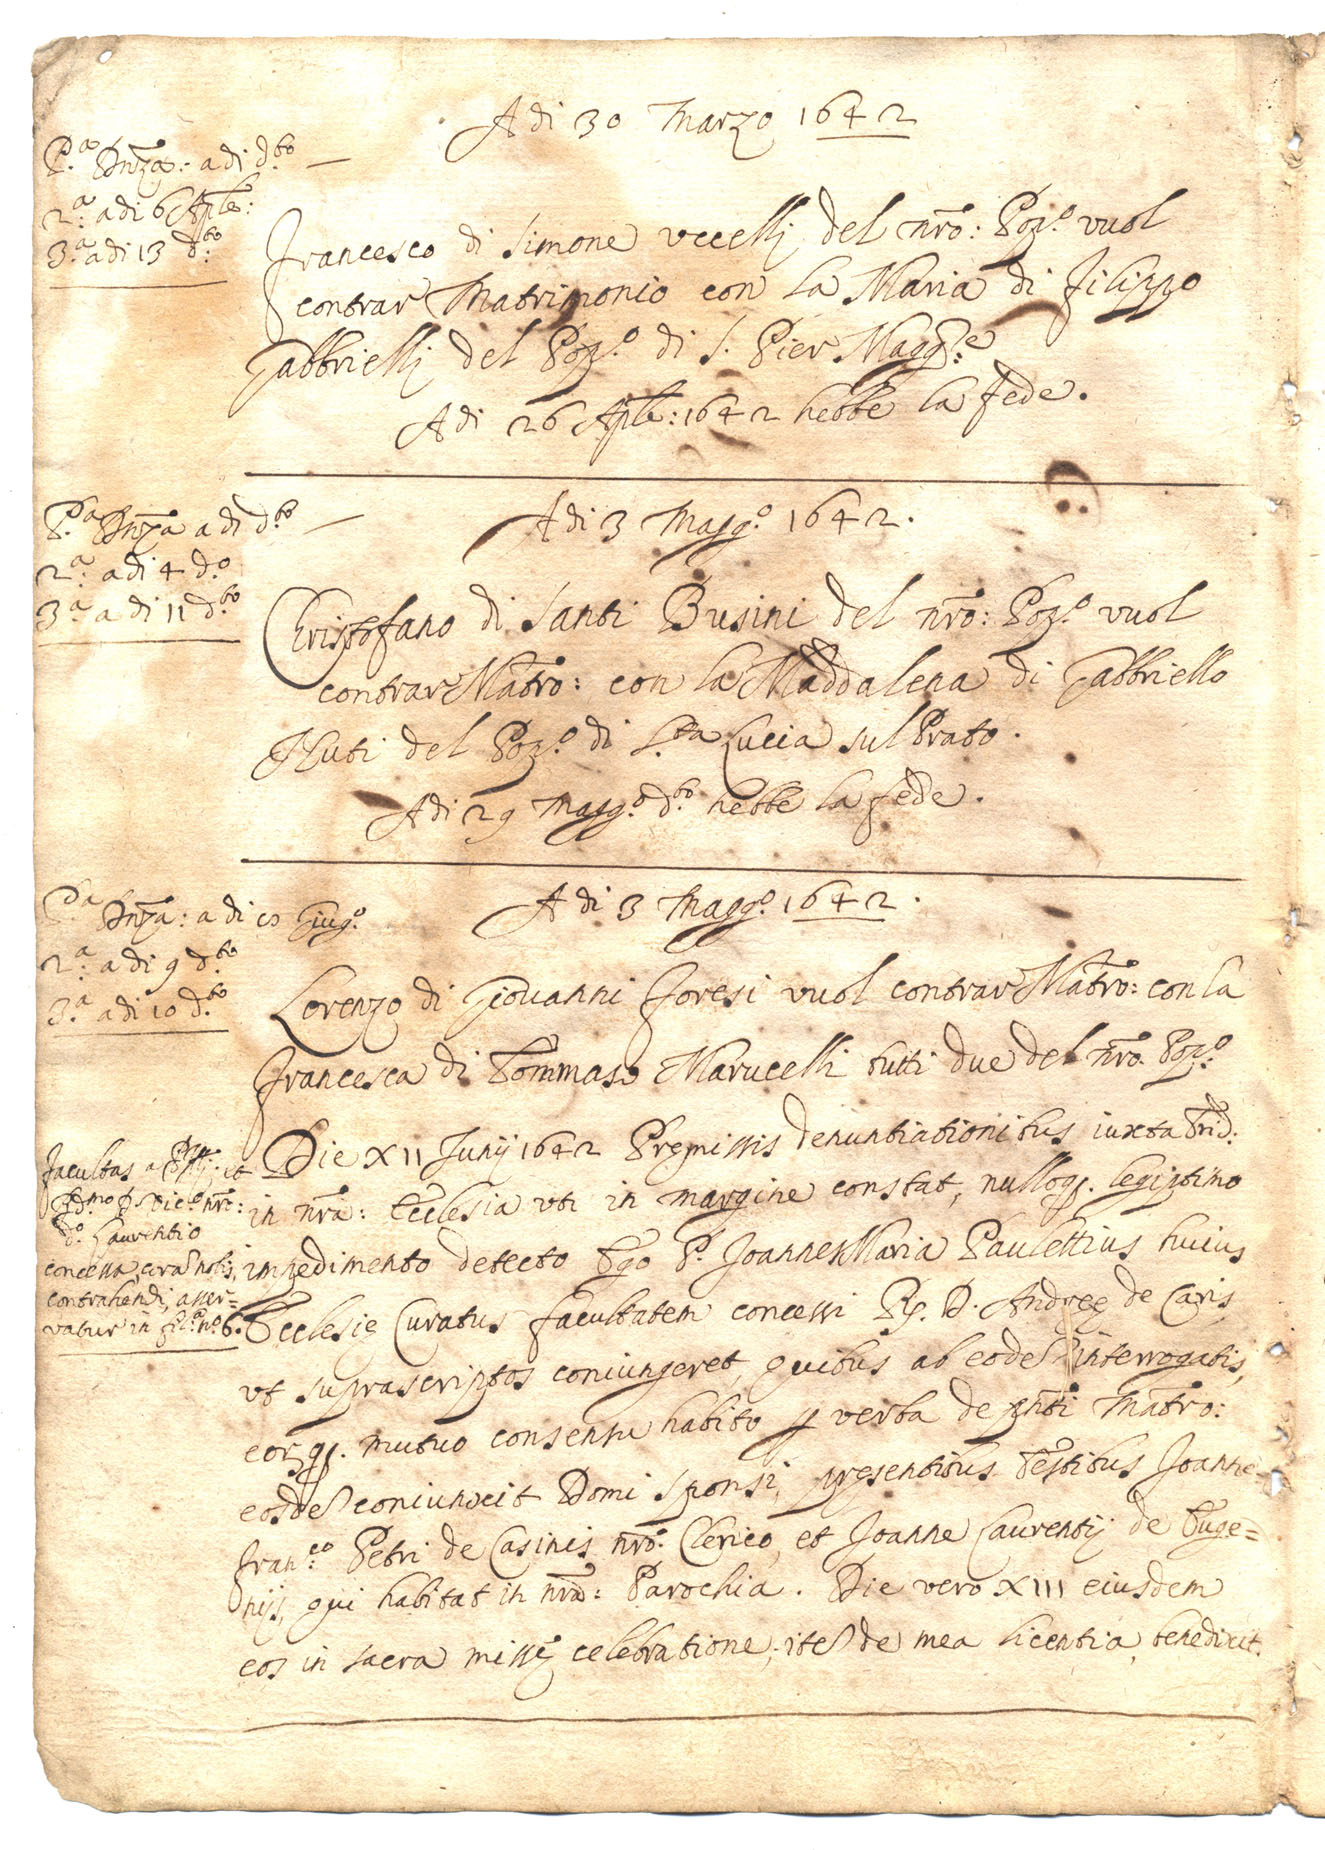 A di 30 Marzo 1642
P.a Dnza: a di d.to
2.a: a di 6 Aple:
3.a: a di 13 d.to:
Francesco di Simone Uccellj del nro: Poz.o vuol
contrar Matrimonio con la Maria di Filippo
Gabbriellj del Poz.o di S. Pier Magg.re
A di 26 Aple: 1642 hebbe la fede.
P.a Dnza a di d.to
2.a: a di 4 d.o
3.a a di 11 d.to
A di 3 Magg.o 1642.
Christofano di Santi Busini del nro: Poz.o vuol
contrar Matro: con la Maddalena di Gabbriello
Nuti del Poz.o di S.ta Lucia sul Prato.
A di 29 Magg.o d.to hebbe la fede.
P.a Dnza: a di Giug.o
2.a: a di 9 d.to
3.a a di 10 d.to
A di 3 Magg.o 1642.
Lorenzo di Giovanni Foresi vuol contrar Matro: con la
Francesca di Tommaso Marucelli tutti due del nro Poz.o
Facultas a
nro:
d.o Laurentio
concessa,
contrahendi, asser=
vatur in fil: n.o 6.
Die XII Junij 1642 Premissis denuntiationibus iuxta Trid:
in nra: Ecclesia uti in margine constat, nulloq. legiptimo
impedimento detecto Ego P. Joannes Maria Paulettius huius
Ecclesie Curatus facultatem concessi R. D. Andree de Caris,
ut suprascriptos coniungeret, quibus ab eode interrogatis,
eorq. mutuo consensu habito p verba de pnti Matro:
eosde coniunxit Domi sponsi, presentibus testibus Joanne
Fran.co Petri de Casinis nro Clerico, et Joanne Laurentij de Euge=
nijs, qui habitat in nra: Parochia. Die vero XIII eiusdem
eos in sacra misse celebratione, ite de mea licentia, benedixit.